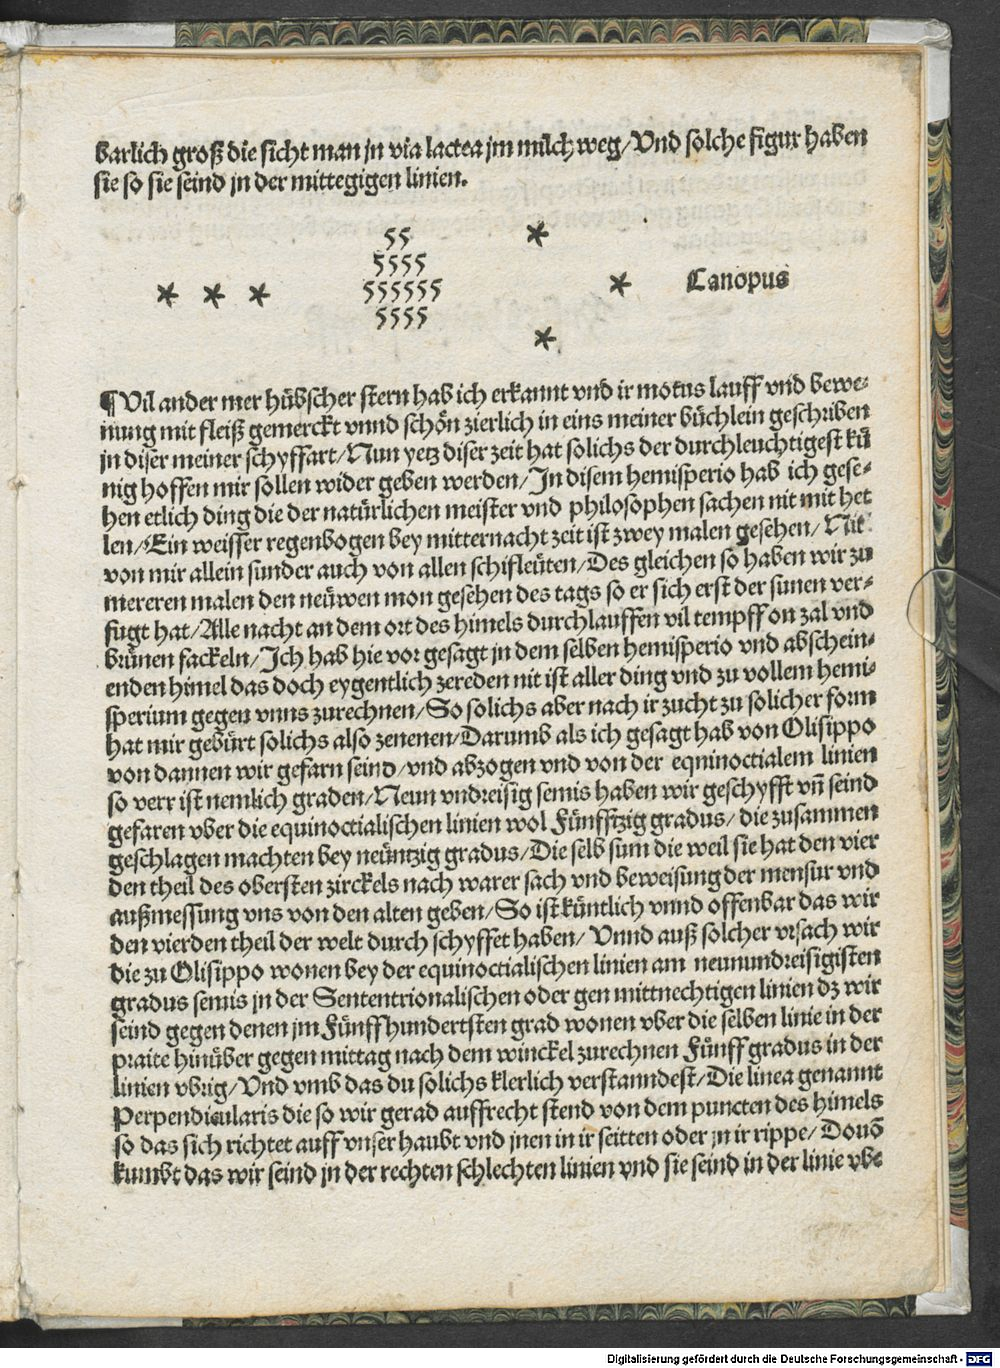 barlich groß die sicht man jn via lactea jm milch weg/Vnd solche figur haben
sie so sie seind jn der mittegigen linien.
55
5555
555555
5555
Canopus
¶Vil ander mer hübscher stern hab ich erkannt vnd ir motus lauff vnd bewe-
nung mit fleiß gemerckt vnnd schön zierlich in eins meiner büchlein geschriben
jn diser meiner schyffart/Nun yetz diser zeit hat solichs der durchleuchtigest kü
nig hoffen mir sollen wider geben werden/Jn disem hemisperio hab ich gese-
hen etlich ding die der natürlichen meister vnd philosophen sachen nit mit hel
len/Ein weisser regenbogen bey mitternacht zeit ist zwey malen gesehen/Nit
von mir allein sunder auch von allen schifleüten/Des gleichen so haben wir zu
mereren malen den neüwen mon gesehen des tags so er sich erst der sunen ver-
fugt hat/Alle nacht an dem ort des himels durchlauffen vil tempff on zal vnd
brünen fackeln/Jch hab hie vor gesagt jn dem selben hemisperio vnd abschein-
enden himel das doch eygentlich zereden nit ist aller ding vnd zu vollem hemi-
sperium gegen vnns zurechnen/So solichs aber nach ir zucht zu solicher form
hat mir gebürt solichs also zenenen/Darumb als ich gesagt hab von Olisippo
von dannen wir gefarn seind/vnd abzogen vnd von der eqninoctialem linien
so verr ist nemlich graden/Neun vndreisig semis haben wir geschyfft vñ seind
gefaren vber die equinoctialischen linien wol Fünfftzig gradus/ die zusammen
geschlagen machten bey neüntzig gradus/Die selb sum die weil sie hat den vier
den theil des obersten zirckels nach warer sach vnd beweisung der mensur vnd
außmessung vns von den alten geben/So ist küntlich vnnd offenbar das wir
den vierden theil der welt durch schyffet haben/ Vnnd auß solcher vrsach wir
die zu Olisippo wonen bey der equinoctialischen linien am neunundreisigisten
gradus semis jn der Sententrionalischen oder gen mittnechtigen linien dz wir
seind gegen denen jm Fünffhundertsten grad wonen vber die selben linie in der
praite hinüber gegen mittag nach dem winckel zurechnen Fünff gradus in der
linien vbrig/Vnd vmb das du solichs klerlich verstanndest/Die linea genannt
Perpendicularis die so wir gerad auffrecht stend von dem puncten des himels
so das sich richtet auff vnser haubt vnd jnen in ir seitten oder jn ir rippe/Douõ
kumbt das wir seind jn der rechten schlechten linien vnd sie seind in der linie vbe
Digitalisierung gefördert durch die Deutsche Forschungsgemeinschaft - DFG